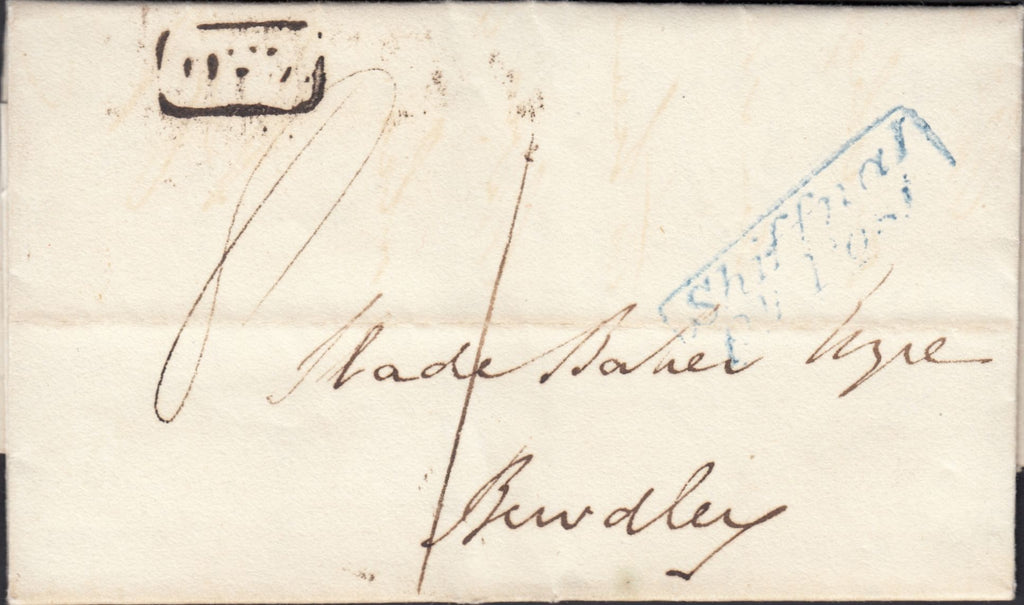 Shiffnal
Py Post
Slade Baker Esqre
Bewdley